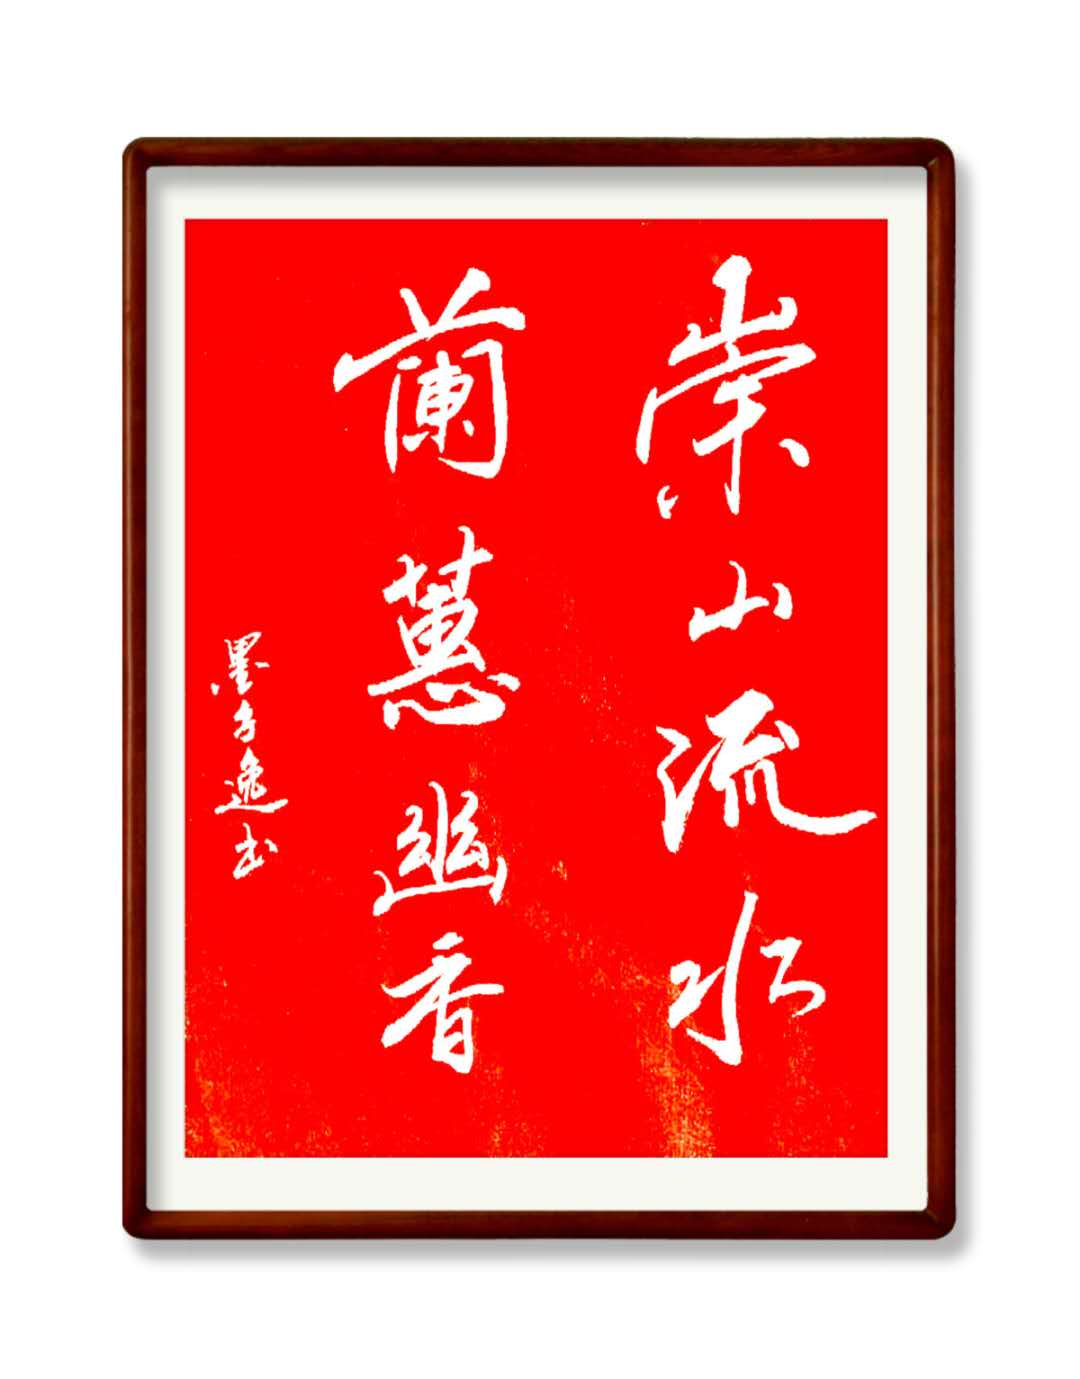 崇山流水
蘭蕙幽香
墨子逸书